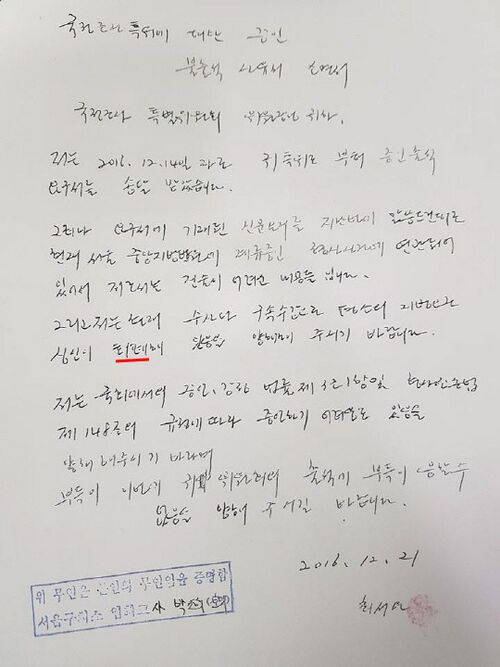 국정조사 특위에 대한 증인
불출석 사유서 소명서
국정조사 특별위원회 위원장님 귀하.
저는 2016. 12. 14일 귀 특위로 부터 증인출석
요구서를 송달 받았습니다.
그러나 요구서에 기재된
현재 서울 중앙지방법원에 계류중인 형사사건에 연관되어
있어서 진술이 어려운 내용들 입니다.
그리고 저는 현재 수사
심신이 피폐해 있음을 양해해 주시기 바랍니다.
저는 국회에서의 증언, 감정 법률 제 3조 1항 및 형사소송법
제 148조의 규정에 따라 증언하기 어려움을
양해 해 주시기 바라며
부득이 귀 위원회에 출석치 부득이 응할 수
없음을 양해 주시길 바랍니다.
2016. 12. 21
최서원
위 무인은 본인의 무인임을 증명함
서울구치소